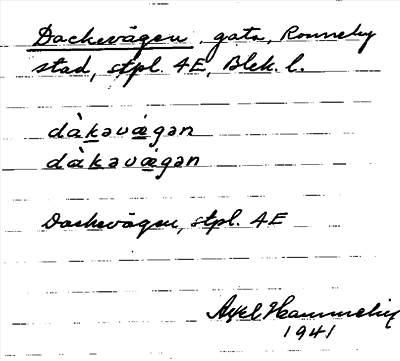 Dackevägen, gata, Ronneby
stad, stpl. 4E, Blek. l.
dàkəvǽgən
dàkəvǽgən
Dackevägen, stpl. 4E
Axel
1941